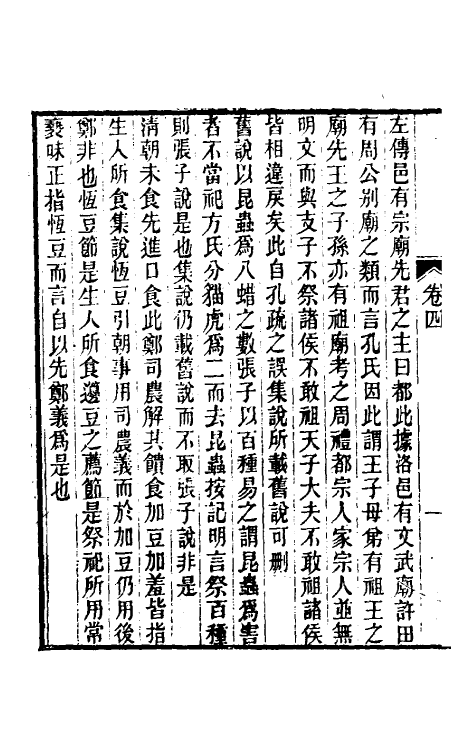 卷四
一
左傳邑有宗廟先君之主曰都此據洛邑有文武廟許田
有周公别廟之類而言孔氏因此謂王子母弟有祖王之
廟先王之子孫亦有祖廟考之周禮都宗人家宗人並無
明文而與支子不祭諸侯不敢祖天子大夫不敢祖諸侯
皆相違戾矣此自孔疏之誤集說所載舊說可刪
舊說以昆蟲爲八蜡之數張子以百種易之謂昆蟲爲害
者不當祀方氏分貓虎爲二而去昆蟲按記明言祭百種
則張子說是也集說仍載舊說而不取張子說非是
清朝未食先進口食此鄭司農解其饋食加豆加羞皆指
生人所食集說恆豆引朝事用司農義而於加豆仍用後
鄭非也恆豆節是生人所食邊豆之薦節是祭祀所用常
褻味正指恆豆而言自以先鄭義爲是也